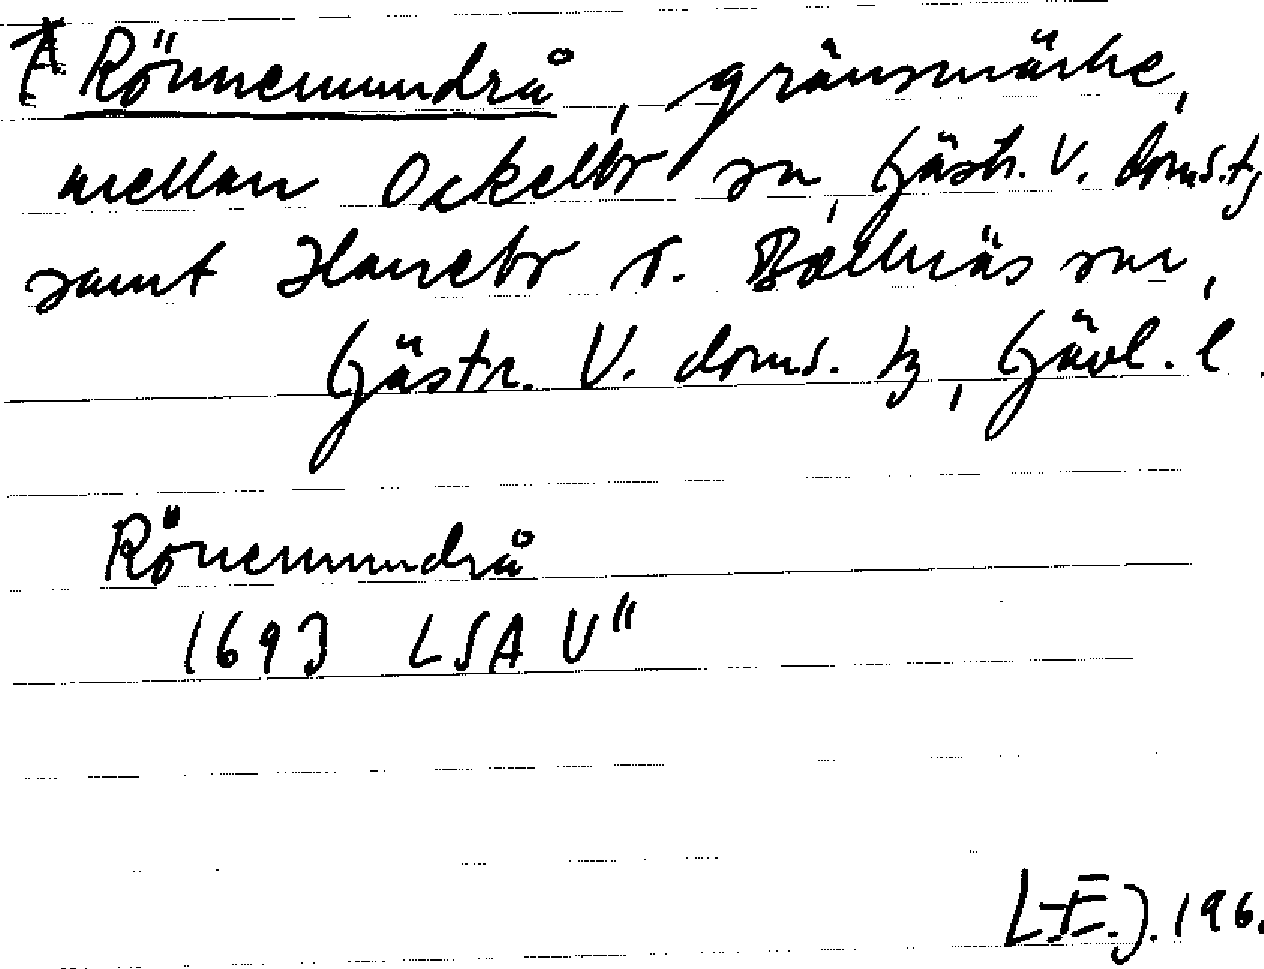 Rönnemundrå, gränsmärke,
mellan Ockelbo sn, Gästr. V. doms.t,
samt Hanebo o. Bollnäs snr,
Gästr. V. doms. tg, Gävl. l
Rönemundrå
1693 LSA V"
L-E.J. 196.